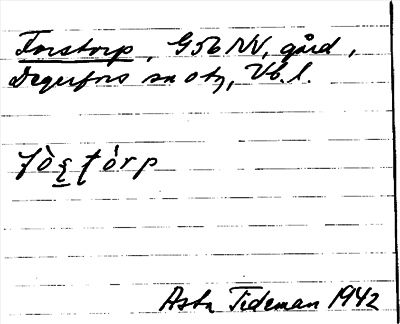 Forstorp, G56 NV, gård,
Degerfors sn o tg, Vb. l.
fò̀ʂʈórp
Asta Tideman 1942